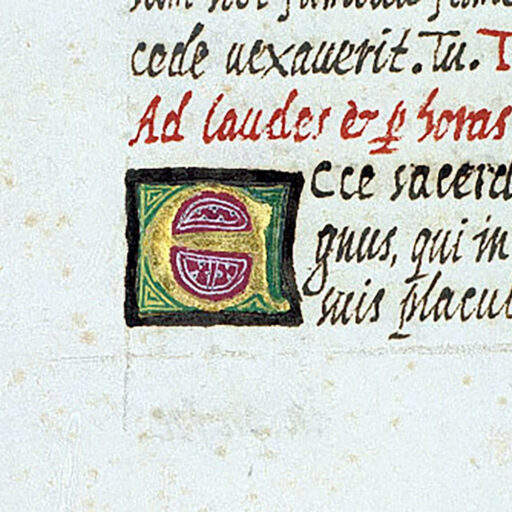 cede uexauerit. Tu. T
Ad laudes & p horas
Ecce sacerd
gnus, qui in
suis placui